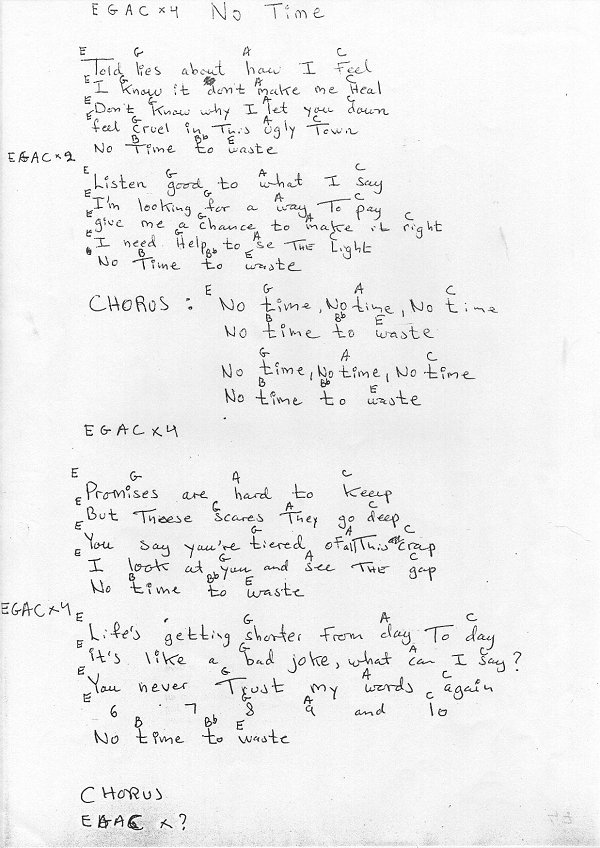 EGAC x4 No Time
E G A C
Told lies about how I feel
E G A C
I know it don't make me Heal
E G A C
Don't know why I let you down
E G A C
feel cruel in This Ugly Town
B Bb E
No Time to waste
EGAC x2
E G A C
Listen good to what I say
E G A C
I'm looking for a way To pay
E G A C
give me a chance to make it right
E G A C
I need Help to se THE Light
B Bb E
No Time to waste
E G A C
CHORUS: No time, No time, No time
B Bb E
No time to waste
G A C
No time, No time, No time
B Bb E
No time to waste
EGAC x4
E G A C
Promises are hard to keep
E G A C
But Theese scares They go deep
E G A C
You say you're tiered of all This crap
E G A C
I look at you and see THE gap
B Bb E
No time to waste
EGAC x4
E G A C
Life's getting shorter from day To day
E G A C
it's like a bad joke, what can I say?
E G A C
You never Trust my words again
E G A C
6 7 8 9 and 10
B Bb E
No time to waste
CHORUS
EGAC x?